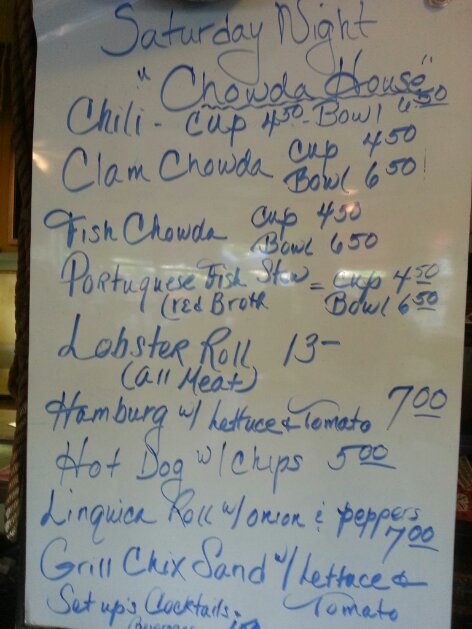 Saturday Night
"Chowda House"
Chili - Cup 4.50 - Bowl 6.50
Clam Chowda Cup 4.50
Bowl 6.50
Fish Chowda Cup 4.50
Bowl 6.50
Portuguese Fish Stew = Cup 4.50
(red Broth Bowl 6.50
Lobster Roll 13-
(all Meat)
Hamburg w/ Lettuce & Tomato 7.00
Hot Dog w/ Chips 5.00
Linquica Roll w/ onion & peppers
7.00
Grill Chix Sand w/ Lettace &
Tomato
Set up's Cocktails -